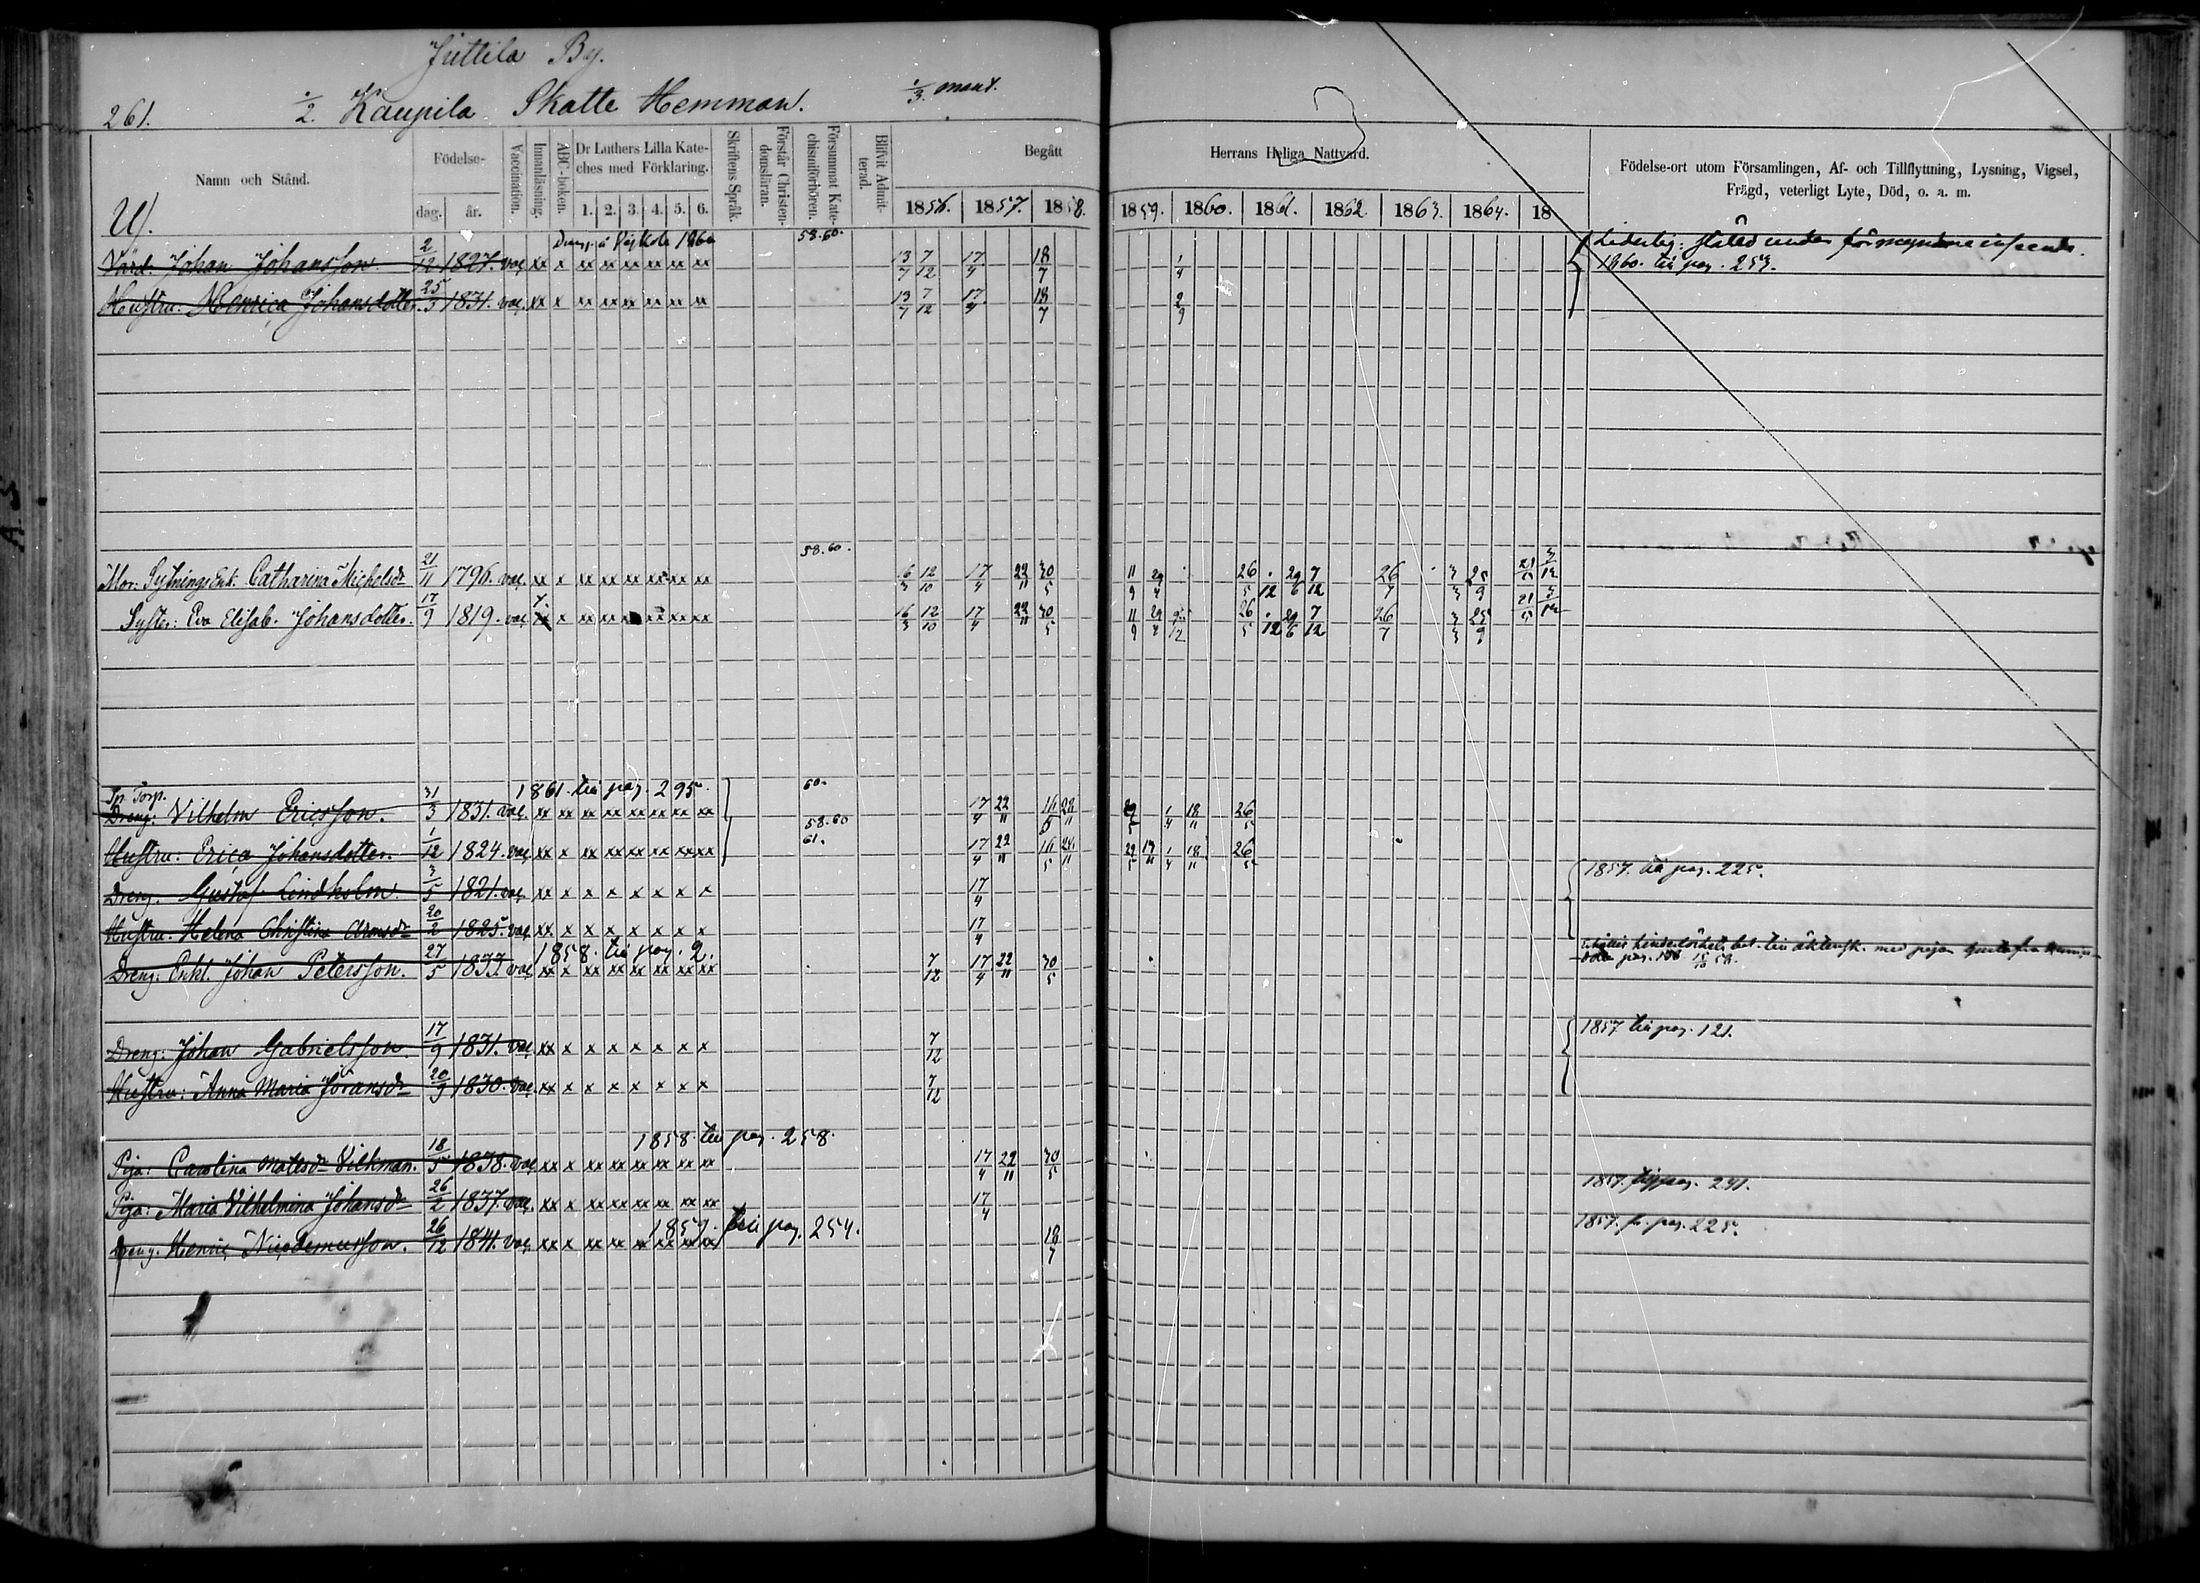 Juttila By.
261. 1/2. Kaupila Skatte Hemman. 1/3. mant.
Namn och Stånd. Födelse- dag. år. Vaccination. Innanläsning. ABC-boken. Dr Luthers Lilla Kateches med Förklaring. 1. 2. 3. 4. 5. 6. Skriftens Språk. Förstår Christendomsläran. Försummat Katechismiförhören. Blifvit Admitterad. Begått Herrans Heliga Nattvard. Födelse-ort utom Församlingen, Af- och Tillflyttning, Lysning, Vigsel, Frägd, veterligt Lyte, Död, o. a. m.
1856. 1857. 1858. 1859. 1860. 1861. 1862. 1863. 1864. 18
U.
58.60. Liderlig: stäld under förmyndare inseende.
Värd. Johan Johansson. 2/12 1827. vac. xx x xx xx xx xx xx xx 13/7 7/12 17/4 18/7 1/4 1860. till pag. 253.
Hustru. Henrica Johansdotter. 25/3 1831. vac. xx x xx xx xx xx xx xx 13/7 7/12 17/4 18/7 2/9
58.60.
Mor: Sytnings Enk. Catharina Michelsdr 21/11 1796. vac. xx x xx xx xx xx xx xx 16/3 12/10 17/4 22/11 30/5 11/9 26/5 29/6 7/12 26/7 3/3 25/9
Syster: Eva Elisab. Johansdotter. 17/9 1819. vac. x xx xx xx xx xx 16/3 12/10 17/4 22/11 30/5 11/9 26/5 29/6 7/12 26/7 3/3 25/9
Sp. Torp. 1861. till pag. 295. 60.
Dreng: Vilhelm Ericsson. 31/3 1831. vac. xx xx xx xx xx xx xx xx 17/4 22/11 16/5 28/11 29/5 1/4 18/11 26/5
58.60
61.
Hustru. Erica Johansdotter. 1/12 1824. vac. xx x xx xx xx xx xx xx 17/4 22/11 16/5 29/5 1/4 18/11 26/5
Dreng. Gustaf Lindholm. 3/5 1821. vac. xx x x x x x x x 17/4 1857. till pag. 225.
Hustru. Helena Christina 20/2 1825. vac. xx x x x x x x x 17/4
1858. till pag. 2.
Dreng: Enkl. Johan Petersson. 27/5 1833. vac. xx xx xx xx xx xx xx xx 7/12 17/4 22/11 30/5
Dreng: Johan Gabrielsson. 17/9 1831. vac. xx x x x x x x x 7/12 1857 till pag. 121.
Hustru: Anna Maria Johansdr 20/9 1830. vac. xx x x x x x x x 7/12
1858. till pag. 258.
Piga: Carolina Matsdr Vilkman. 18/5 1838. vac. xx x xx xx xx xx xx xx 17/4 22/11 30/5
Piga: Maria Vilhelmina Johansdr 26/2 1837. vac. xx x xx xx xx xx xx xx 17/4 1857. till pag. 291.
till pag. 254.
Dreng. Henric Nicodemusson. 26/12 1841. vac. xx x xx xx xx xx xx 18/7 1857. fr. pag. 225.